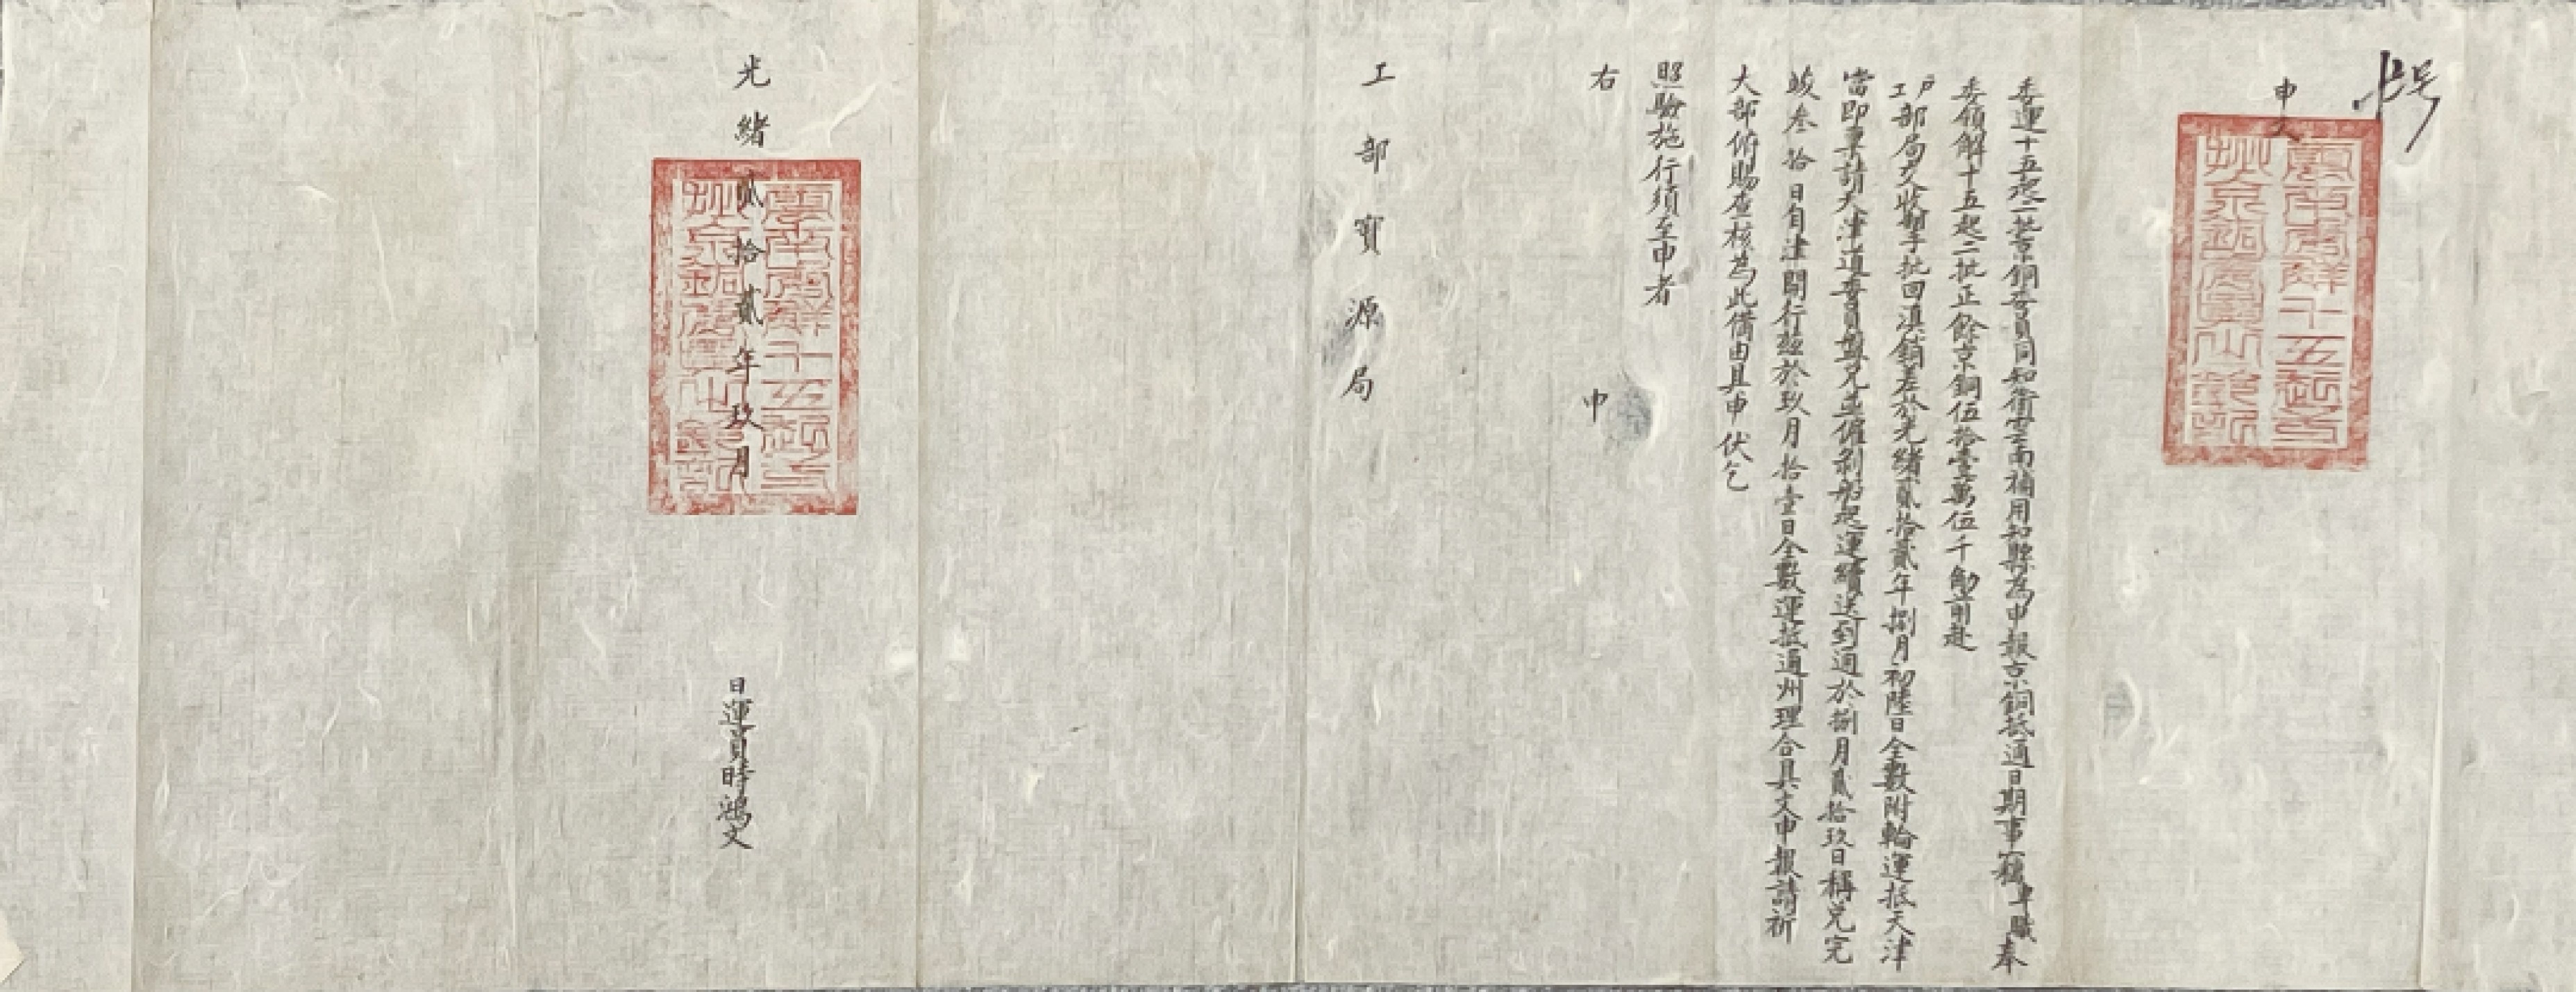 申文
委運十五起二批京銅委員同知銜雲南補用知縣為申報京銅抵通日期事竊卑職奉
委領解十五起二批正餘京銅伍拾壹萬伍千觔前赴
戶工部局交收掣批回滇銷差於光緒貳拾貳年捌月初陸日全數附輪運抵天津
當即稟請天津道委員盤兌並僱剝船起運續送到通於捌月貳拾玖日稱兌完
竣叁拾日自津開行茲於玖月拾壹日全數運抵通州理合具文申報請祈
大部俯賜查核為此備由具申伏乞
照驗施行須至申者
右申
工部寶源局
光緒貳拾貳年玖月 日運員時鴻文